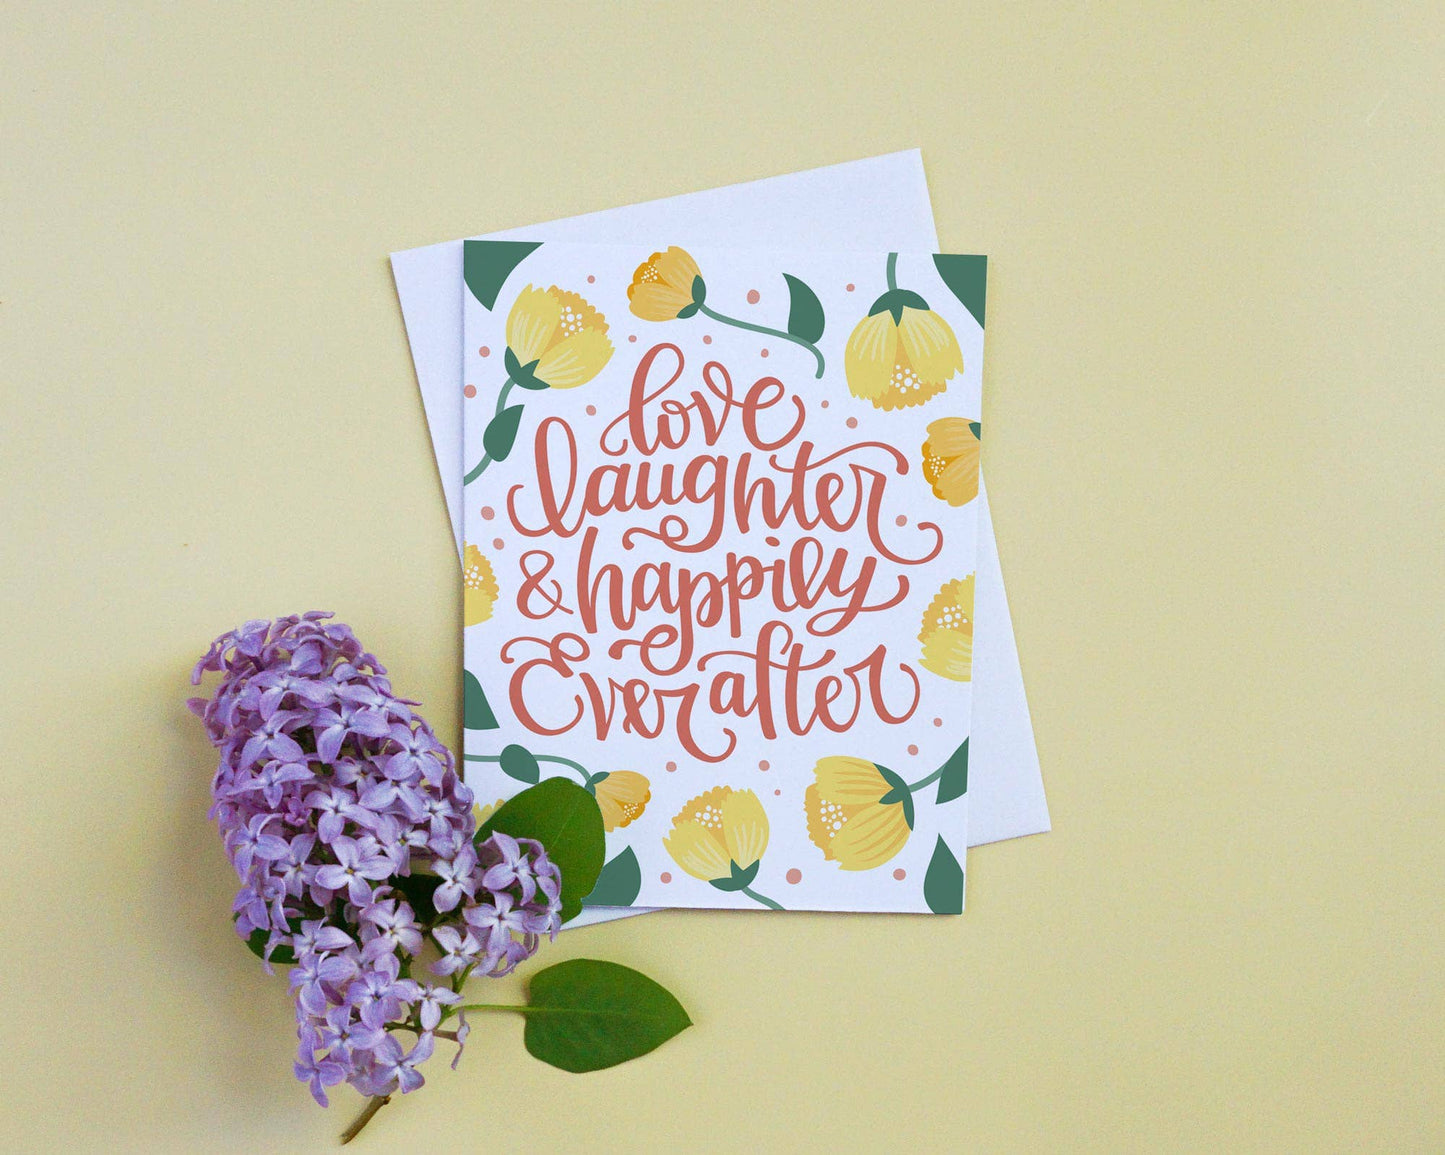 love
laughter
& happily
Ever after